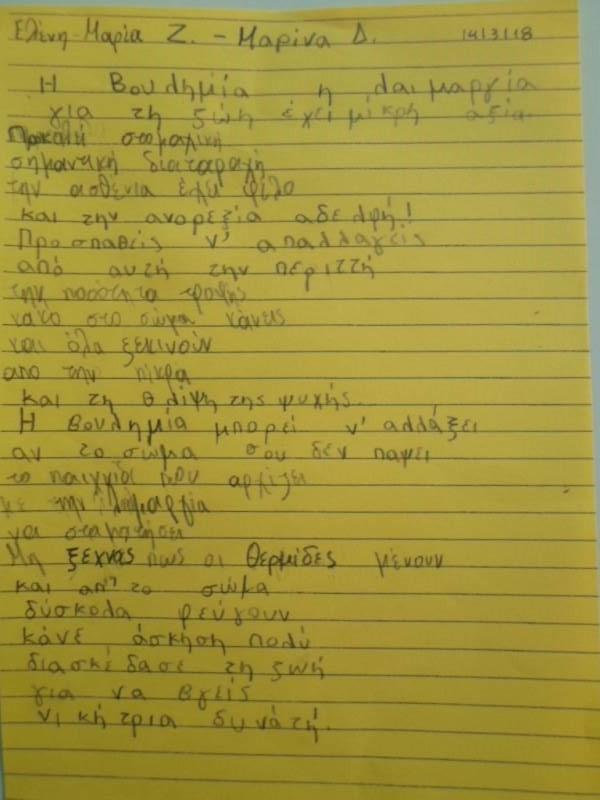 Ελένη-Μαρία Ζ. - Μαρίνα Δ. 14/3/18
Η Βουλημία η λαιμαργία
για τη ζωή έχει μικρή αξία.
Προκαλεί στομαχική
σημαντική διαταραχή
την ασθένεια έχει φίλο
και την ανορεξία αδελφή!
Προσπαθείς ν' απαλλαγείς
από αυτή την περιττή
την ποσότητα τροφής
κακό στο σώμα κάνεις
και όλα ξεκινούν
απο την πίκρα
και τη θλίψη της ψυχής.
Η Βουλημία μπορεί ν' αλλάξει
αν το σώμα σου δεν παψει
το παιχνίδι που αρχίζει
με την λαιμαργία
να σταματήσει
Μη ξεχνας πως οι θερμίδες μένουν
και απ' το σώμα
δύσκολα φεύγουν
κάνε άσκηση πολύ
διασκέδασε τη ζωή
για να βγείς
νικήτρια δυνατή!